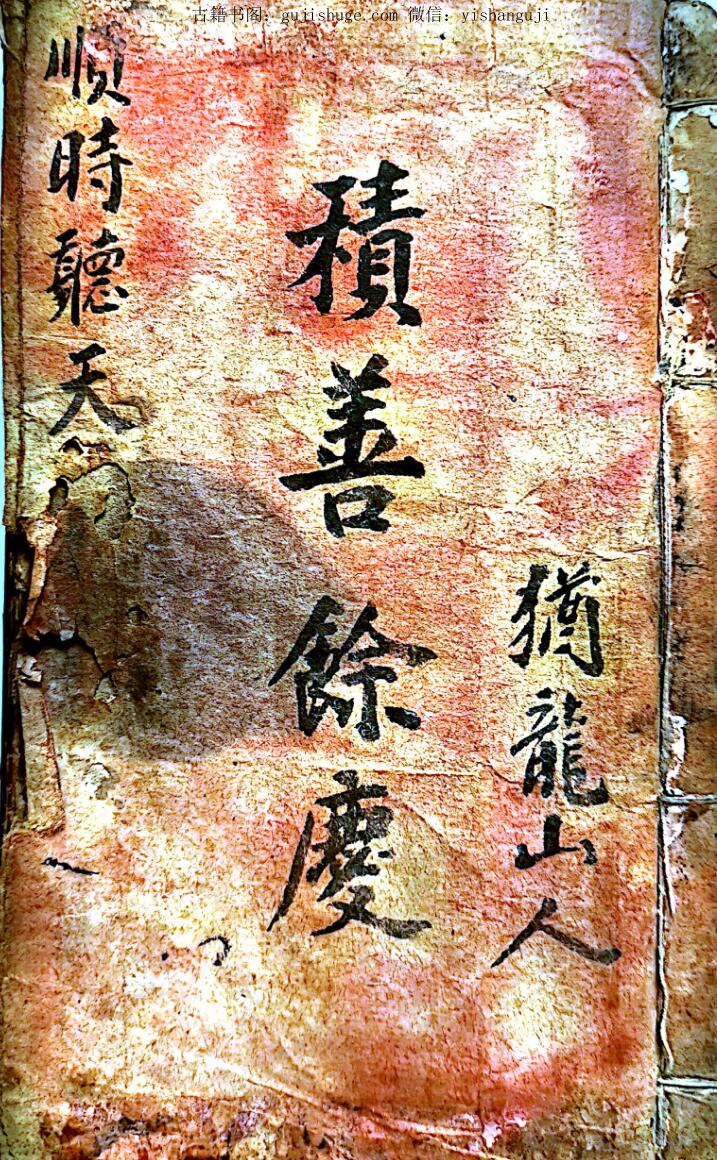 古籍书图：gujishuge.com 微信：yishanguji
猶龍山人
積善餘慶
順時聽天